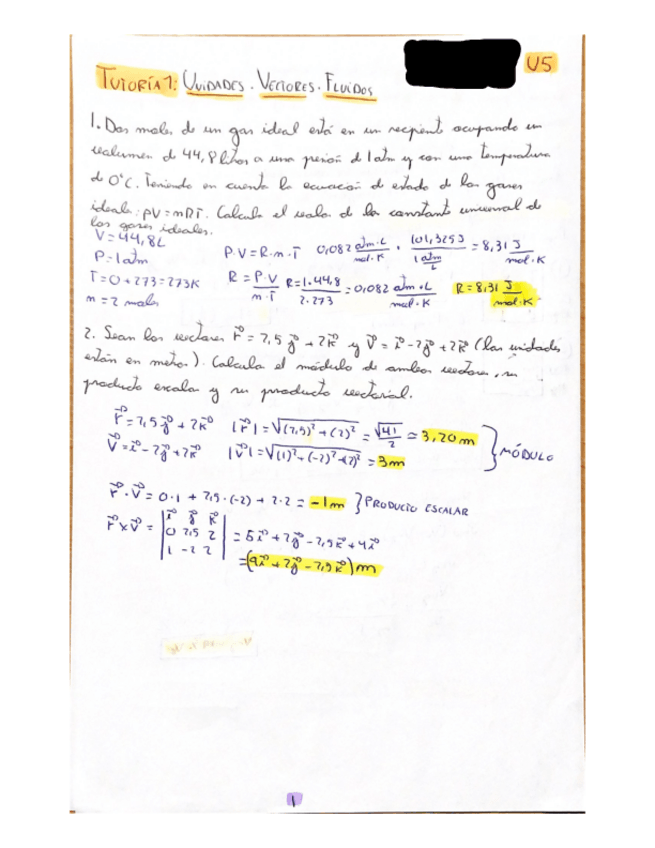 U5
TUTORÍA 1: UNIDADES. VECTORES. FLUIDOS
1. Dos moles de un gas ideal está en un recipiente ocupando un
volumen de 44,8 litros a una presión de 1 atm y con una temperatura
de 0°C. Teniendo en cuenta la ecuación de estado de los gases
ideales: pV = nRT. Calcula el valor de la constante universal de
los gases ideales.
V = 44,8L
P = 1 atm
T = 0 + 273 = 273K
n = 2 moles
P·V = R·n·T 0,082 atm·L/mol·K · 101,325J/1 atm·L = 8,31 J/mol·K
R = P·V/n·T R = 1·44,8/2·273 = 0,082 atm·L/mol·K R = 8,31 J/mol·K
2. Sean los vectores r⃗ = 2,5 j⃗ + 2k⃗ y v⃗ = i⃗ - 2j⃗ + 2k⃗ (las unidades
están en metros). Calcula el módulo de ambos vectores, su
producto escalar y su producto vectorial.
r⃗ = 2,5 j⃗ + 2k⃗ |r⃗| = √(2,5)² + (2)² = √41/2 ≃ 3,20 m
v⃗ = i⃗ - 2j⃗ + 2k⃗ |v⃗| = √(1)² + (-2)² + (2)² = 3m
} MÓDULO
r⃗ · v⃗ = 0·1 + 2,5·(-2) + 2·2 = -1m } PRODUCTO ESCALAR
r⃗ x v⃗ = | i⃗ j⃗ k⃗ |
| 0 2,5 2 | = 5i⃗ + 2j⃗ - 2,5k⃗ + 4i⃗
| 1 -2 2 | = (9i⃗ + 2j⃗ - 2,5k⃗) m
1